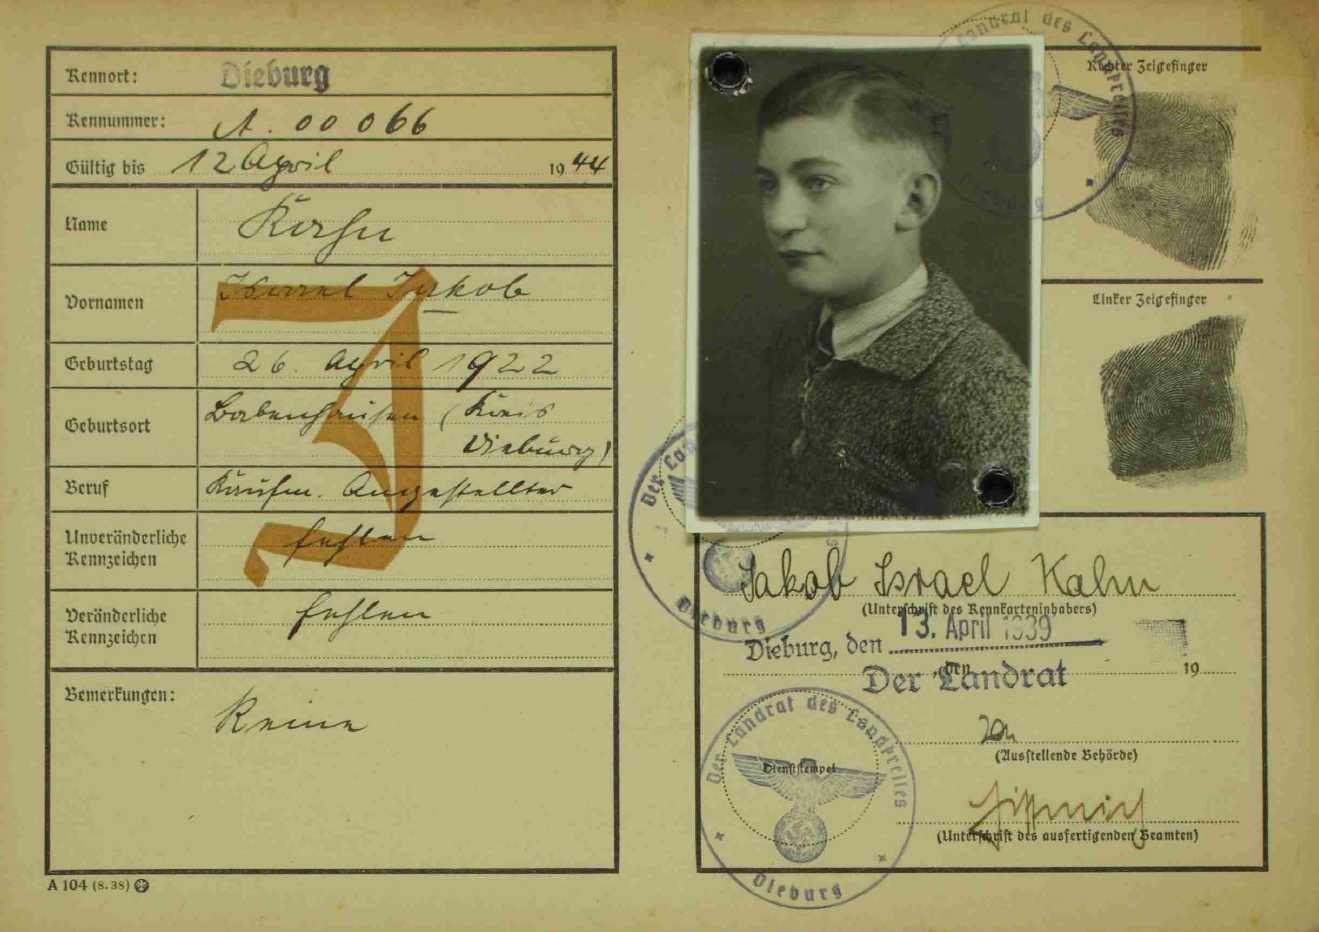 Kennort: Dieburg
Kennummer: A. 00 066
Gültig bis 12 April 1944
Name Kahn
Vornamen Israel Jakob
Geburtstag 26. April 1922
Geburtsort Babenhausen (Kreis
Dieburg)
Beruf Kaufm. Angestellter
Unveränderliche
Kennzeichen fehlen
Veränderliche
Kennzeichen fehlen
Bemerkungen:
Keine
A 104 (8. 38)
J
Der Landrat des Landkreises
Dieburg
Rechter Zeigefinger
Linker Zeigefinger
Der Landrat des Landkreises
Dieburg
Jakob Israel Kahn
(Unterschrift des Kennkarteninhabers)
Dieburg, den 13. April 1939
den 19
Der Landrat
(Ausstellende Behörde)
(Unterschrift des ausfertigenden Beamten)
Der Landrat des Landkreises
Dienststempel
Dieburg